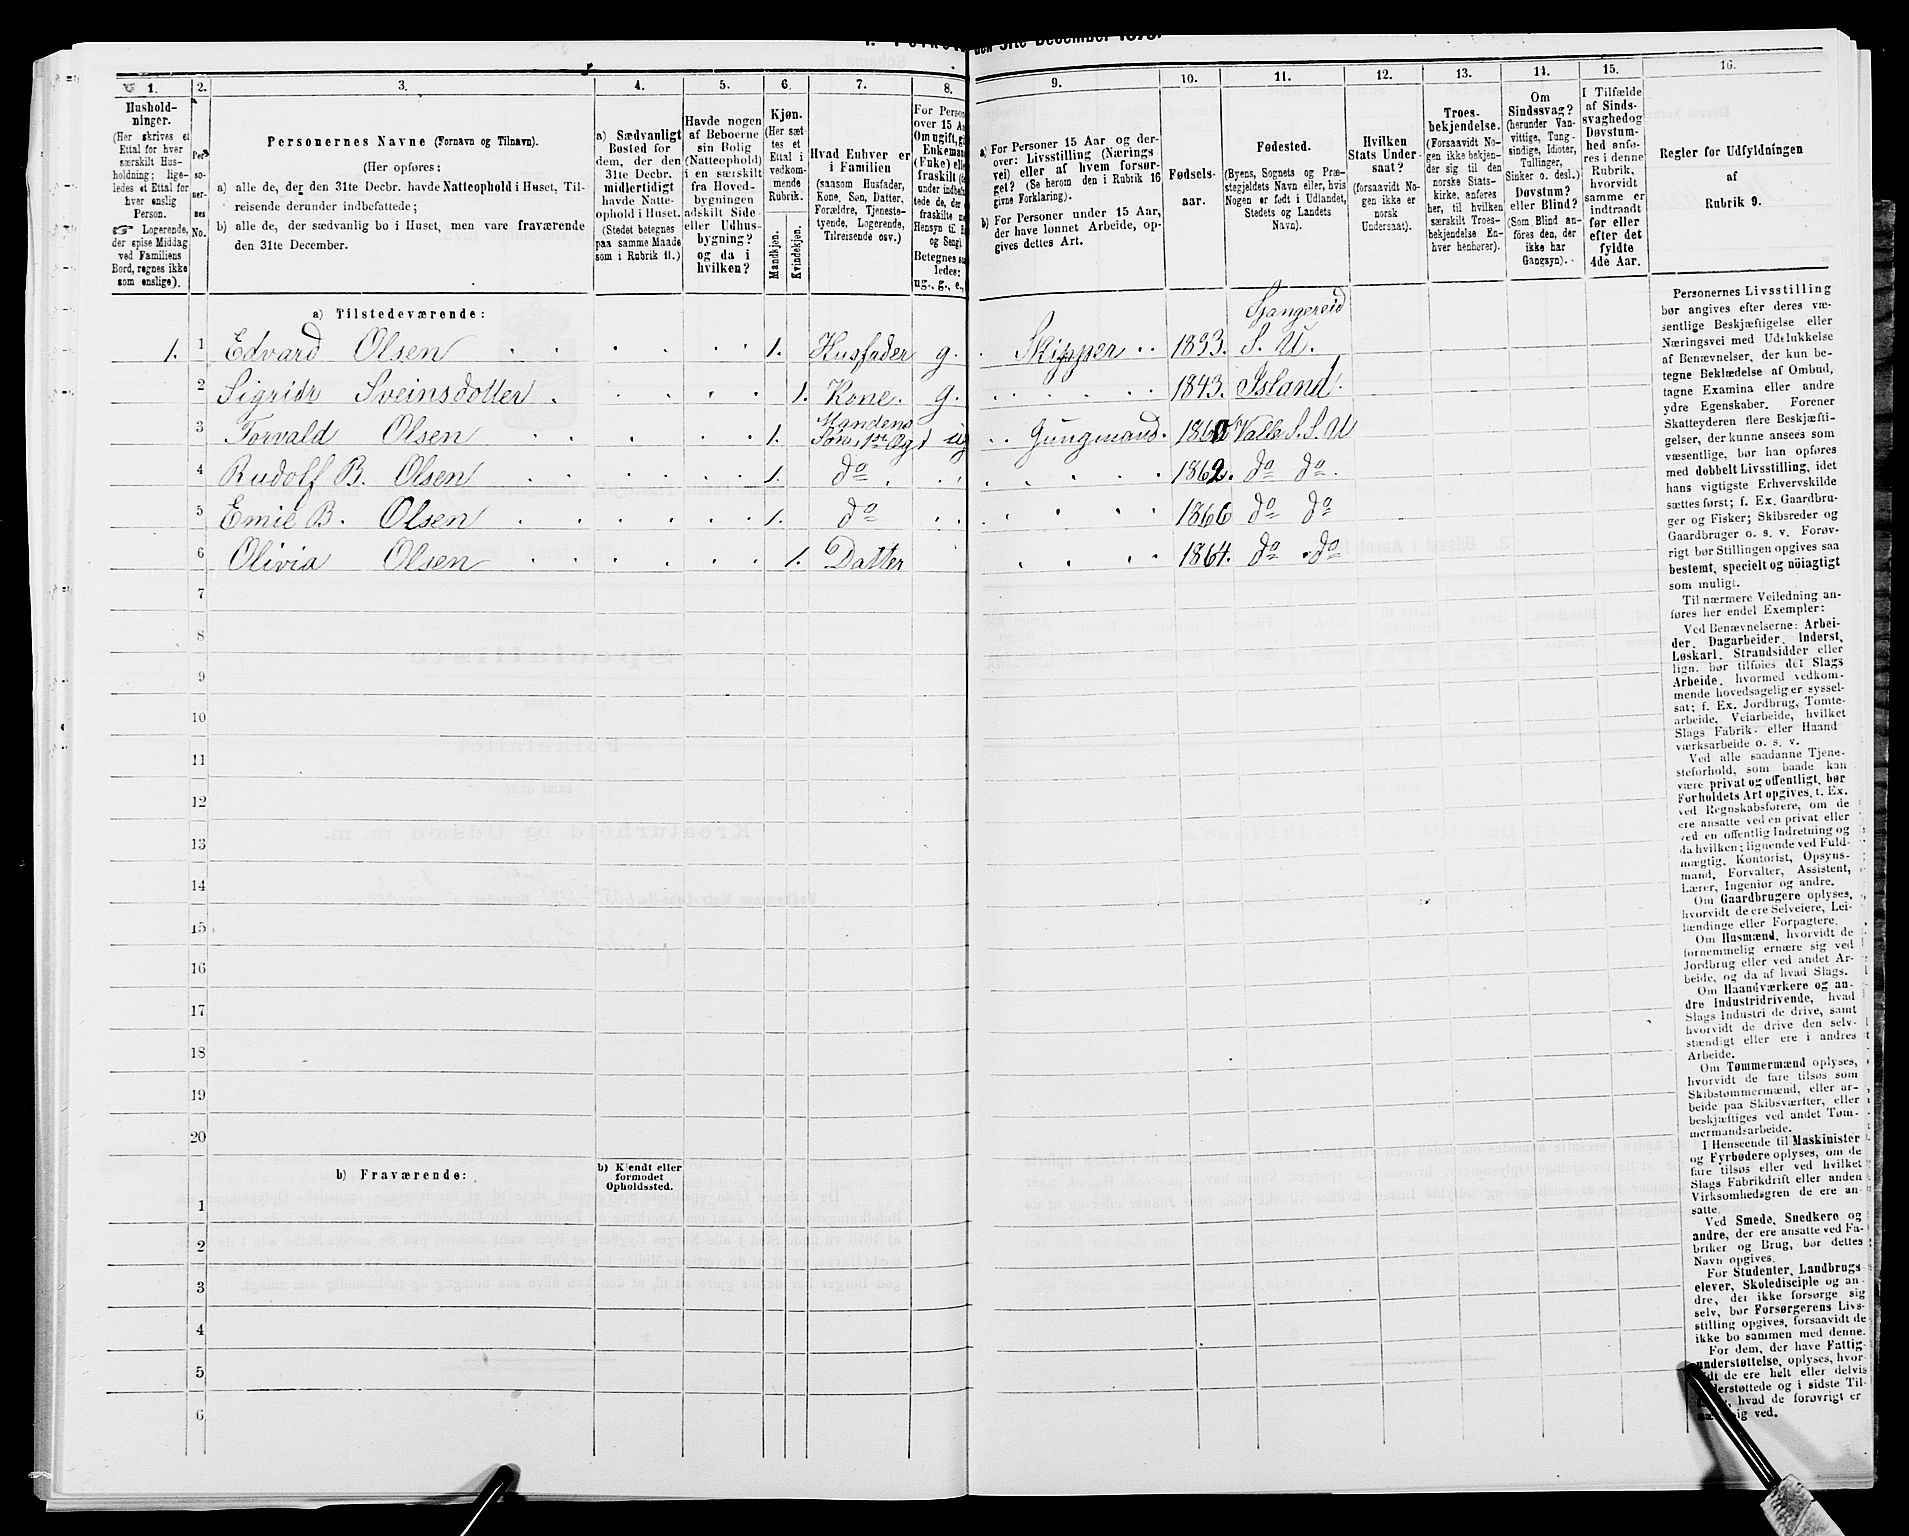 den 31te December 1875.
1.
Hushold-
ninger.
(Her skrives et
Ettal for hver
særskilt Hus-
holdning; lige-
ledes et Ettal for
hver enslig
Person.
☞ Logerende,
der spise Middag
ved Familiens
Bord, regnes ikke
som enslige).
2.
Per-
so-
ner-
nes
No.
3.
Personernes Navne (Fornavn og Tilnavn).
(Her opføres:
a) alle de, der den 31te Decbr. havde Natteophold i Huset, Til-
reisende derunder indbefattede;
b) alle de, der sædvanlig bo i Huset, men vare fraværende
den 31te December.
4.
a) Sædvanligt
Bosted for
dem, der den
31te Decbr.
midlertidigt
havde Natte-
ophold i Huset.
(Stedet betegnes
paa samme Maade
som i Rubrik 11.)
5.
Havde nogen
af Beboerne
sin Bolig
(Natteophold)
i en særskilt
fra Hoved-
bygningen
adskilt Side-
eller Udhus-
bygning?
og da i
hvilken?
6.
Kjøn.
(Her sæt-
tes et
Ettal i
vedkom-
mende
Rubrik.
Mandkjøn.
Kvindekjøn.
7.
Hvad Enhver er
i Familien
(saasom Husfader,
Kone, Søn, Datter,
Forældre, Tjeneste-
tyende, Logerende,
Tilreisende osv.)
8.
For Person
over 15 Aa
Om ugift, gi
Enkemand
(Enke) elle
fraskilt (se
under indbefat
tede de, der e
fraskilte m
Hensyn til B
og Seng).
Betegnes saa
ledes:
ug., g., e.,
9.
a) For Personer 15 Aar og der-
over: Livsstilling (Nærings
vei) eller af hvem forsør-
get? (Se herom den i Rubrik 16
givne Forklaring).
b) For Personer under 15 Aar,
der have lønnet Arbeide, op-
gives dettes Art.
10.
Fødsels-
aar.
11.
Fødested.
(Byens, Sognets og Præ-
stegjeldets Navn eller, hvis
Nogen er født i Udlandet,
Stedets og Landets
Navn).
12.
Hvilken
Stats Under-
saat?
(forsaavidt No-
gen ikke er
norsk
Undersaat).
13.
Troes-
bekjendelse.
(Forsaavidt No-
gen ikke bekjen-
der sig til den
norske Stats-
kirke, anføres
her, til hvilken
særskilt Troes-
bekjendelse En-
hver henhører).
14.
Om
Sindssvag?
(herunder Van-
vittige, Tung-
sindige, Idioter,
Tullinger,
Sinker o. desl.)
Døvstum?
eller Blind?
(Som Blind an-
føres den, der
ikke har
Gangsyn).
15.
I Tilfælde
af Sinds-
svaghed og
Døvstum-
hed anfø-
res i denne
Rubrik,
hvorvidt
samme er
indtraadt
før eller
efter det
fyldte
4de Aar.
16.
Regler for Udfyldningen
af
Rubrik 9.
a) Tilstedeværende:
Spangereid
1. 1 Edvard Olsen 1. Husfader g. Skipper 1833. S. U.
2 Sigridr Sveinsdotter 1. Kone. g. 1843. Island.
Mandens
3 Torvald Olsen 1. Søn, 1st Ægt ug Jungmand. 1860 Valle S. S. U
4 Rudolf B. Olsen 1. do 1862. do do.
5 Emil B. Olsen 1. do 1866 do do
6 Olivia Olsen 1. Datter 1864. do do
7
8
9
10
11
12
13
14
15
16
17
18
19
20
b) Fraværende:
b) Kjendt eller
formodet
Opholdssted.
1
2
3
4
5
6
Personernes Livsstilling
bør angives efter deres væ-
sentlige Beskjæftigelse eller
Næringsvei med Udelukkelse
af Benævnelser, der kun be-
tegne Beklædelse af Ombud,
tagne Examina eller andre
ydre Egenskaber. Forener
Skatteyderen flere Beskjæfti-
gelser, der kunne ansees som
væsentlige, bør han opføres
med dobbelt Livsstilling, idet
hans vigtigste Erhvervskilde
sættes først; f. Ex. Gaardbru-
ger og Fisker; Skibsreder og
Gaardbruger o. s. v. Forøv-
rigt bør Stillingen opgives saa
bestemt, specielt og nöiagtigt
som muligt.
Til nærmere Veiledning an-
føres her endel Exempler:
Ved Benævnelserne: Arbei-
der, Dagarbeider, Inderst,
Løskarl, Strandsidder eller
lign. bør tilføies det Slags
Arbeide, hvormed vedkom-
mende hovedsagelig er syssel-
sat; f. Ex. Jordbrug, Tomte-
arbeide, Veiarbeide, hvilket
Slags Fabrik- eller Haand
værksarbeide o. s. v.
Ved alle saadanne Tjene-
steforhold, som baade kan
være privat og offentligt, bør
Forholdets Art opgives, t. Ex.
ved Regnskabsførere, om de
ere ansatte ved en privat eller
ved en offentlig Indretning og
da hvilken; lignende ved Fuld-
mægtig, Kontorist, Opsyns-
mand, Forvalter, Assistent,
Lærer, Ingeniør og andre.
Om Gaardbrugere oplyses,
hvorvidt de ere Selveiere, Lei-
lændinge eller Forpagtere.
Om Husmænd, hvorvidt de
fornemmelig ernære sig ved
Jordbrug eller ved andet Ar-
beide, og da af hvad Slags.
Om Haandværkere og an-
dre Industridrivende, hvad
Slags Industri de drive, samt
hvorvidt de drive den selv-
stændigt eller ere i andres
Arbeide.
Om Tømmermænd oplyses,
hvorvidt de fare tilsøs som
Skibstømmermænd, eller ar-
beide paa Skibsværfter, eller
beskjæftiges ved andet Tøm-
mermandsarbeide.
I Henseende til Maskinister
og Fyrbødere oplyses, om de
fare tilsøs eller ved hvilket
Slags Fabrikdrift eller anden
Virksomhedsgren de ere an-
satte.
Ved Smede, Snedkere og
andre, der ere ansatte ved Fa-
briker og Brug, bør dettes
Navn opgives.
For Studenter, Landbrugs
elever, Skoledisciple og an-
dre, der ikke forsørge sig
selv, bør Forsørgerens Livs-
stilling opgives, forsaavidt de
ikke bo sammen med denne.
For dem, der have Fattig-
understøttelse, oplyses, hvor-
de ere helt eller delvis
understøttede og i sidste Til-
hvad de forøvrigt er
sig ved.